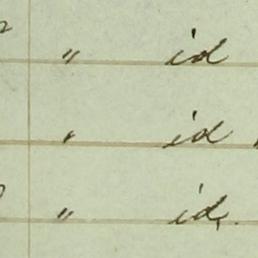 " id
" id
" id.